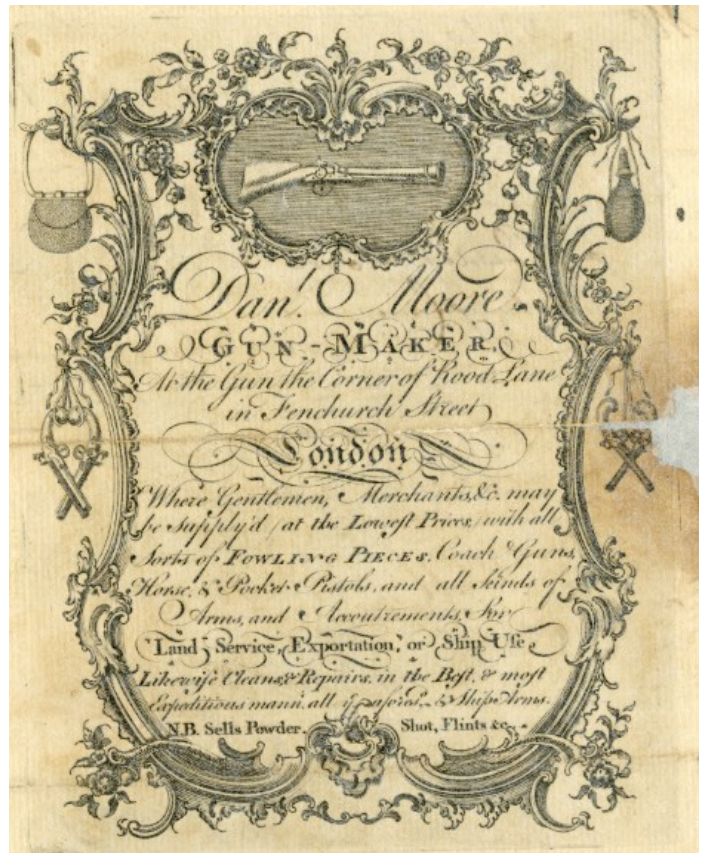 Danl. Moore
GUN-MAKER.
At the Gun the Corner of Rood Lane
in Fenchurch Street
London
Where Gentlemen, Merchants, &c. may
be Supply'd, at the Lowest Prices, with all
Sorts of FOWLING PIECES, Coach Guns,
Horse, & Pocket Pistols, and all kinds of
Arms, and Accoutrements, For
Land Service, Exportation, or Ship Use
Likewise Cleans & Repairs, in the Best, & most
Expeditious mannr. all ye aforesd. & Ships Arms.
N.B. Sells Powder, Shot, Flints &c.